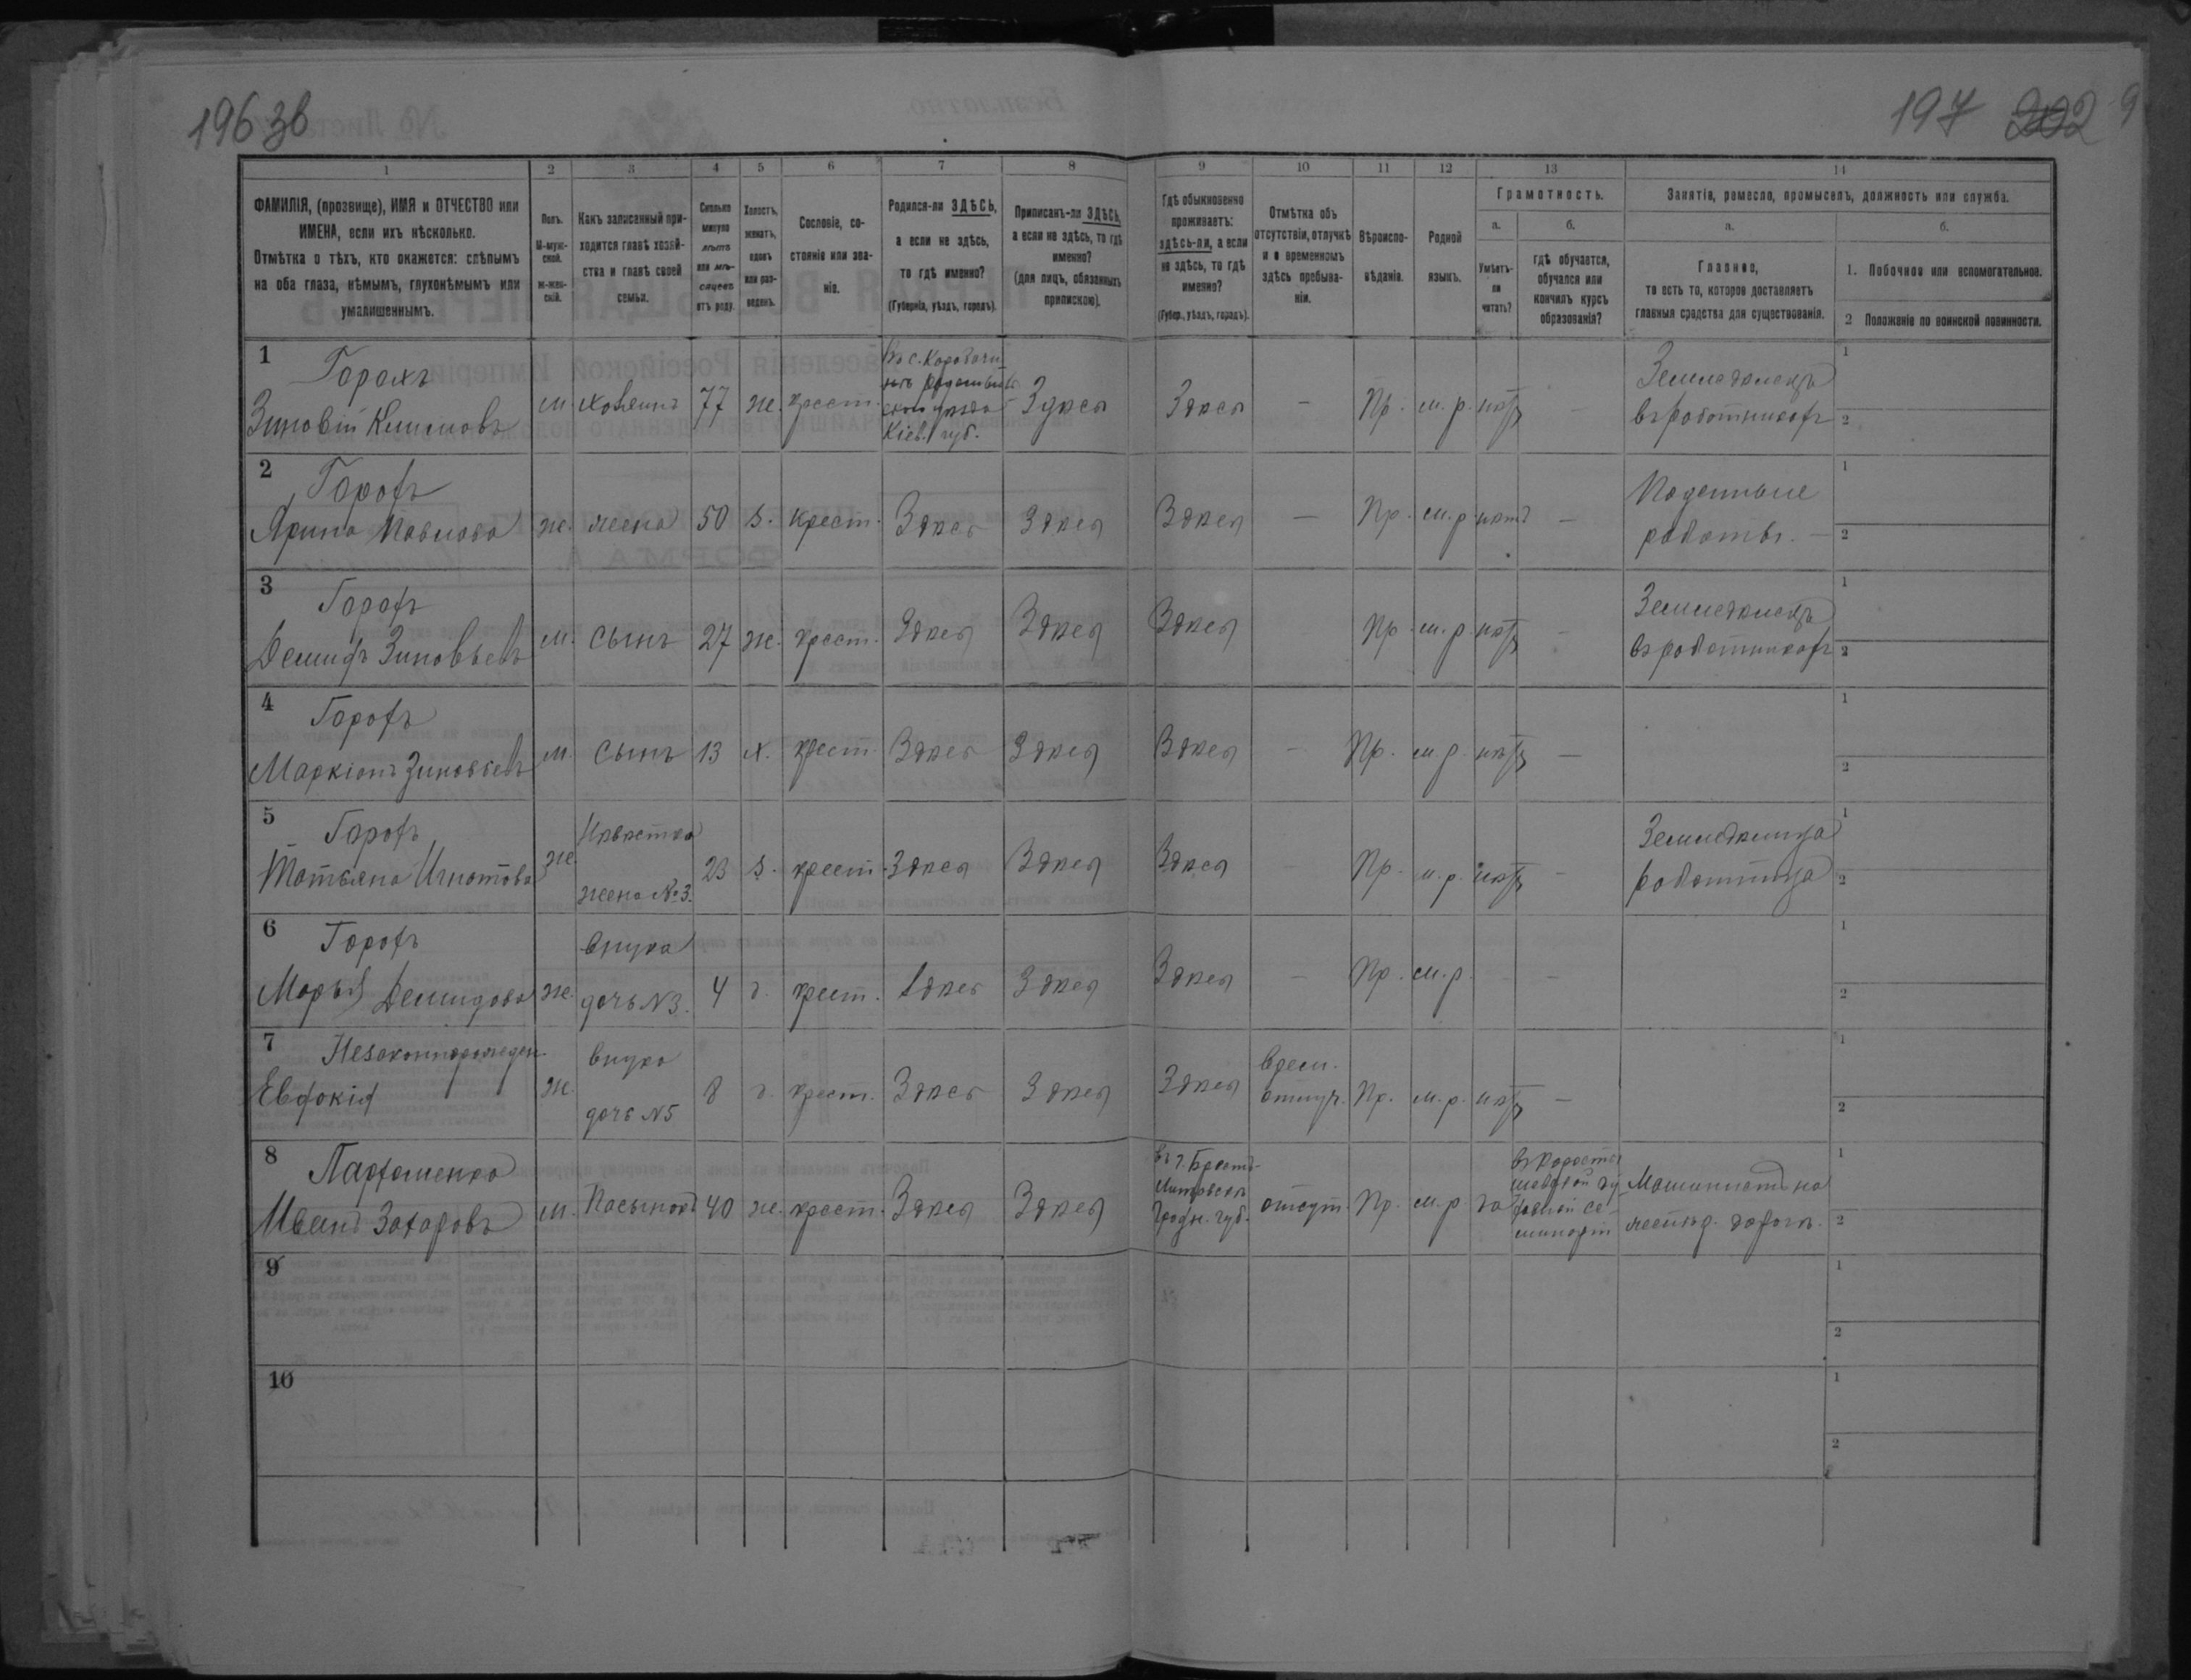 196 зв
197 202 9
1 2 3 4 5 6 7 8 9 10 11 12 13 14
ФАМИЛІЯ, (прозвище), ИМЯ и ОТЧЕСТВО или
ИМЕНА, если ихъ нѣсколько.
Отмѣтка о тѣхъ, кто окажется: слѣпымъ
на оба глаза, нѣмымъ, глухонѣмымъ или
умалишеннымъ.
Полъ.
М-муж-
ской.
ж-жен-
скій.
Какъ записанный при-
ходится главѣ хозяй-
ства и главѣ своей
семьи.
Сколько
минуло
лѣтъ
или мѣ-
сяцевъ
отъ роду.
Холостъ,
женатъ,
вдовъ
или раз-
веденъ.
Сословіе, со-
стояніе или зва-
ніе.
Родился-ли ЗДѢСЬ,
а если не здѣсь,
то гдѣ именно?
(Губернія, уѣздъ, городъ).
Приписанъ-ли ЗДѢСЬ,
а если не здѣсь, то гдѣ
именно?
(для лицъ, обязанныхъ
припискою).
Гдѣ обыкновенно
проживаетъ:
здѣсь-ли, а если
не здѣсь, то гдѣ
именно?
(Губер., уѣздъ, городъ).
Отмѣтка объ
отсутствіи, отлучкѣ
и о временномъ
здѣсь пребыва-
ніи.
Вѣроиспо-
вѣданіе.
Родной
языкъ.
Грамотность.
а.
б.
Умѣетъ-
ли
читать?
гдѣ обучается,
обучался или
кончилъ курсъ
образованія?
Занятія, ремесло, промыселъ, должность или служба.
а.
б.
Главное,
то есть то, которое доставляетъ
главныя средства для существованія.
1. Побочное или вспомогательное.
2 Положеніе по воинской повинности.
1 Горохъ
Зиновій Климовъ
м. хозяинъ 77 ж. крест.
Кіев. губ.
Здѣсь Здѣсь — Пр. м. р. нѣтъ —
Земледѣлецъ
въ работникахъ
1
2
2 Горохъ
Ярина Павлова
ж. жена 50 з. крест. Здѣсь Здѣсь Здѣсь — Пр. м. р. нѣтъ —
Поденныя
работы. —
1
2
3 Горохъ
Демидъ Зиновьевъ
м. сынъ 27 ж. крест. Здѣсь Здѣсь Здѣсь Пр. м. р. нѣтъ —
Земледѣлецъ
въ работникахъ
1
2
4 Горохъ
Маркіонъ Зиновьевъ
м. сынъ 13 х. крест. Здѣсь Здѣсь Здѣсь — Пр. м. р. нѣтъ —
1
2
5 Горохъ
Татьяна Игнатова
ж.
Невѣстка
жена №3.
23 з. крест. Здѣсь Здѣсь Здѣсь — Пр. м. р. нѣтъ —
Земледѣлица
работница
1
2
6 Горохъ
Марья Демидова
ж.
внука
дочь №3.
4 д. крест. Здѣсь Здѣсь Здѣсь — Пр. м. р. — —
1
2
7 Незаконнорожден.
Евдокія
ж.
внука
дочь №5
8 д. крест. Здѣсь Здѣсь Здѣсь
врем.
отлуч.
Пр. м. р. нѣтъ —
1
2
8 Пархоменко
Иванъ Захаровъ
м. Пасынокъ 40 ж. крест. Здѣсь Здѣсь
въ г. Брестъ-
Литовскъ
Гродн. губ.
отсут. Пр. м. р. да
Машинистъ на
желѣзд. дорогѣ.
1
2
9
1
2
10
1
2